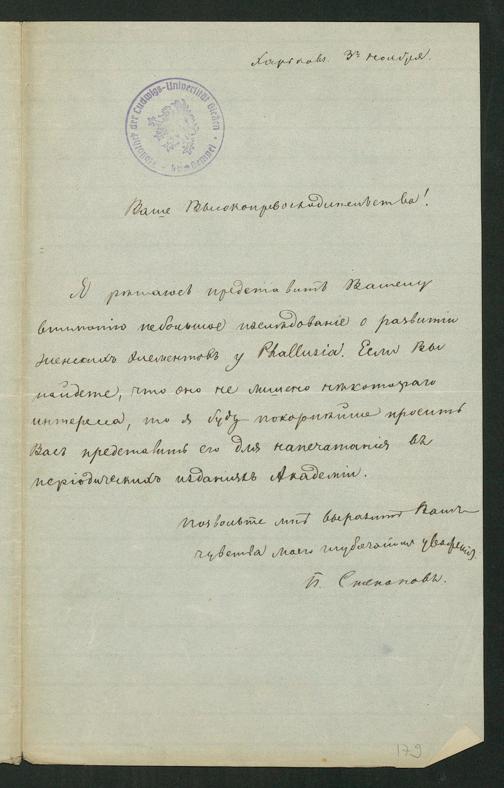 Харьковъ. 3го ноября.
Zoologie der Ludwigs-Universität Gießen
Ваше Высокопревосходительство!
Я рѣшаюсь представить Вашему
вниманію небольшое изслѣдованіе о развитіи
женскихъ элементовъ у Phallusia. Если Вы
найдете, что оно не лишено нѣкотораго
интереса, то я буду покорнѣйше просить
Васъ представить его для напечатанія въ
періодическихъ изданіяхъ Академіи.
Позвольте мнѣ выразить Вамъ
чувства моего глубочайшаго уваженія
П. Степановъ.
179